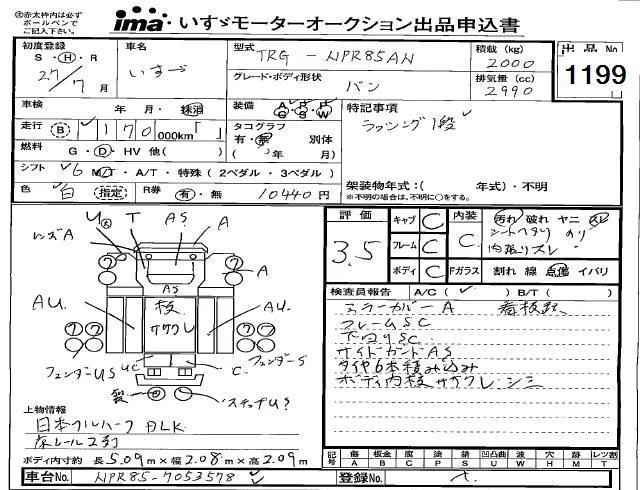 ㊟赤太枠内は必ず
ボールペンで
ご記入下さい。
ima・いすゞモーターオークション出品申込書
初度登録 車名 型式 TRG - NPR85AN 積載(kg) 2000 出品No
S・H・R 27/7月 いすゞ グレード・ボディ形状 バン 排気量(cc) 2990 1199
車検 年・月・抹消 装備 A P P G S W 特記事項
走行 B 170 000km「 」 タコグラフ 有・無 別体 ラッシング1段
燃料 G・D・HV 他( ) ( 年/ 月)
シフト 6 M/T・A/T・特殊(2ペダル・3ペダル) 架装物年式:( 年式)・不明
色 白 指定 R券 有・無 10440円 ※不明の場合は、不明に○をする。
評価 3.5 キャブ C 内装 C 汚れ 破れ ヤニ スレ
フレーム C シートヘタリ ノリ
内張りスレ
ボディ C Fガラス 割れ 線 点傷 イバリ
U 大 T AS A
レンズA ワ ワ A
AS
AU 板 ササクレ AU.
ワワ UC C ワワ
フェンダーUS フェンダーS
ステップU?
検査員報告 A/C( ) B/T( )
ミラーカバーA 看板跡
フレームSC
下回りSC
サイドガードAS
タイヤ6本積み込み
ボディ内板ササクレ・シミ
上物情報
日本フルハーフ BLK
床レール2列
ボディ内寸約 長5.09m×幅2.08m×高2.09m
記号 傷A 板金B 腐C 塗P 錆S 凹凸曲U 波W 穴H 跡M レッツ割T
車台No. NPR85-7053578 登録No.